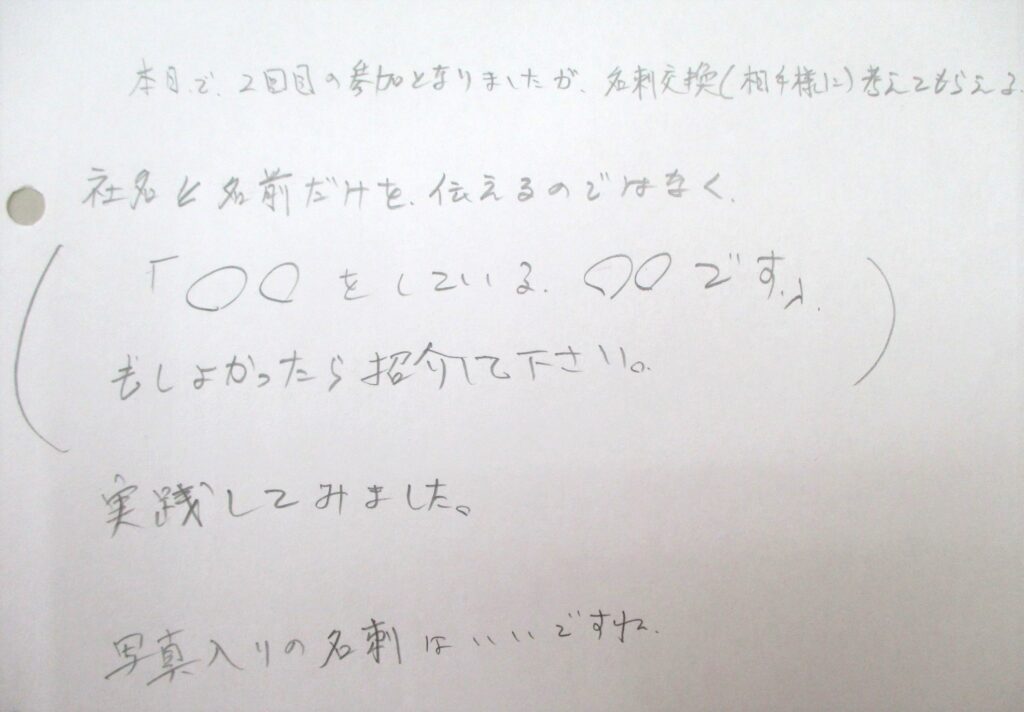 本日で、2回目の参加となりましたが、名刺交換(相手様に)考えてもらえる、
社名と名前だけを、伝えるのではなく、
(「〇〇をしている、〇〇です。」
もしよかったら紹介して下さい。)
実践してみました。
写真入りの名刺はいいですね。